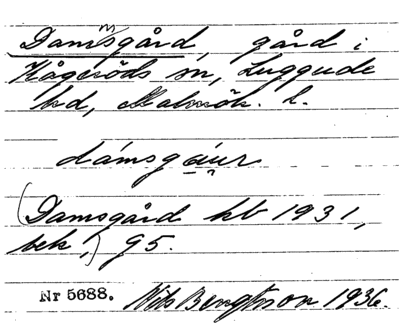 Damsgård, gård i
Kågeröds sn, Luggude
hd, Malmöh. l.
dámsgáur
(Damsgård kb 1931,
bek.) G5.
Nr 5688. Nils Bengtsson 1936.